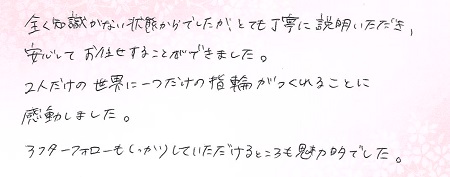 全く知識がない状態からでしたが、とても丁寧に説明いただき、
安心してお任せすることができました。
2人だけの世界に一つだけの指輪がつくれることに
感動しました。
アフターフォローもしっかりしていただけるところも魅力的でした。